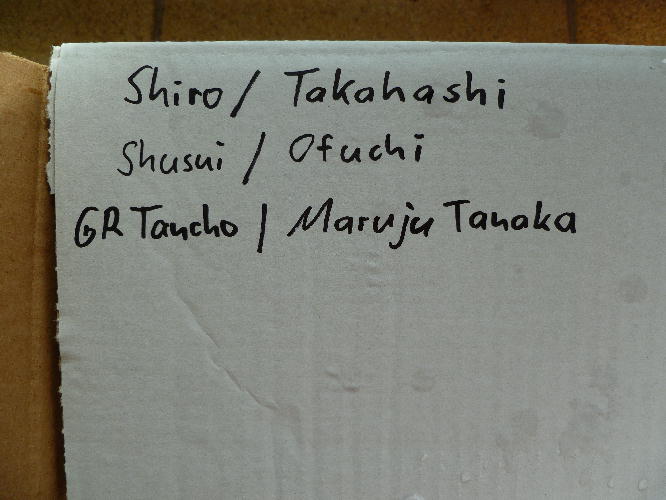 Shiro / Takahashi
Shusui / Ofuchi
GR Tancho / Maruju Tanaka